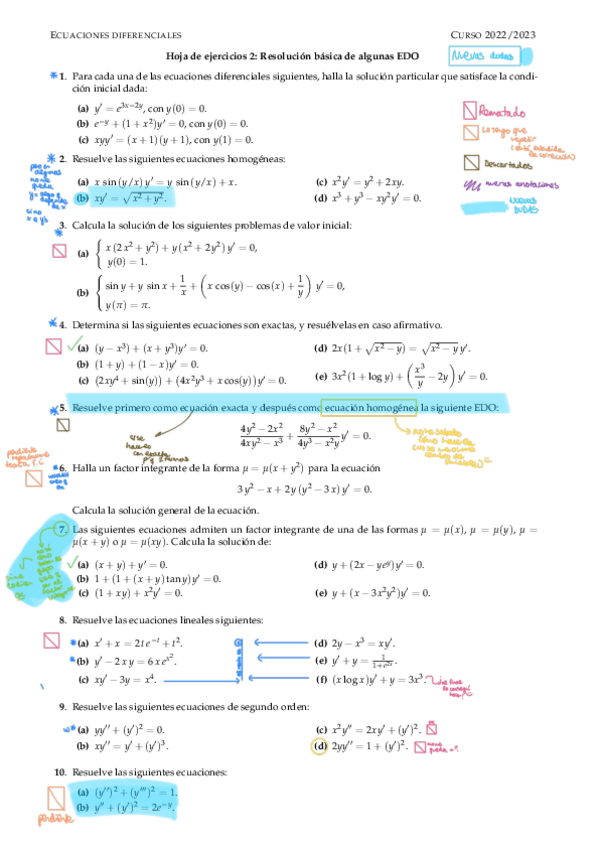 ECUACIONES DIFERENCIALES CURSO 2022/2023
Hoja de ejercicios 2: Resolución básica de algunas EDO
Nuevas dudas
*1. Para cada una de las ecuaciones diferenciales siguientes, halla la solución particular que satisface la condi-
ción inicial dada:
(a) y′ = e^{3x−2y}, con y(0) = 0.
(b) e^{−y} + (1 + x²)y′ = 0, con y(0) = 0.
(c) xyy′ = (x + 1)(y + 1), con y(1) = 0.
Descartados
nuevas anotaciones
NUEVAS
DUDAS
*2. Resuelve las siguientes ecuaciones homogéneas:
(a) x sin(y/x) y′ = y sin(y/x) + x.
(b) xy′ = √(x² + y²).
(c) x²y′ = y² + 2xy.
(d) x³ + y³ − xy²y′ = 0.
*3. Calcula la solución de los siguientes problemas de valor inicial:
(a) { x(2x² + y²) + y(x² + 2y²) y′ = 0,
y(0) = 1.
(b) { sin y + y sin x + 1/x + (x cos(y) − cos(x) + 1/y) y′ = 0,
y(π) = π.
*4. Determina si las siguientes ecuaciones son exactas, y resuélvelas en caso afirmativo.
(a) (y − x³) + (x + y³)y′ = 0.
(b) (1 + y) + (1 − x)y′ = 0.
(c) (2xy⁴ + sin(y)) + (4x²y³ + x cos(y))y′ = 0.
(d) 2x(1 + √(x² − y)) = √(x² − y) y′.
(e) 3x²(1 + log y) + (x³/y − 2y) y′ = 0.
*5. Resuelve primero como ecuación exacta y después como ecuación homogénea la siguiente EDO:
(4y² − 2x²)/(4xy² − x³) + (8y² − x²)/(4y³ − x²y) y′ = 0.
*6. Halla un factor integrante de la forma μ = μ(x + y²) para la ecuación
3y² − x + 2y(y² − 3x) y′ = 0.
Calcula la solución general de la ecuación.
7. Las siguientes ecuaciones admiten un factor integrante de una de las formas μ = μ(x), μ = μ(y), μ =
μ(x + y) o μ = μ(xy). Calcula la solución de:
(a) (x + y) + y′ = 0.
(b) 1 + (1 + (x + y) tan y)y′ = 0.
(c) (1 + xy) + x²y′ = 0.
(d) y + (2x − ye^y)y′ = 0.
(e) y + (x − 3x²y²)y′ = 0.
8. Resuelve las ecuaciones lineales siguientes:
*(a) x′ + x = 2te^{−t} + t².
*(b) y′ − 2xy = 6xe^{x²}.
(c) xy′ − 3y = x⁴.
(d) 2y − x³ = xy′.
(e) y′ + y = 1/(1+e^{2x}).
(f) (x log x)y′ + y = 3x³.
9. Resuelve las siguientes ecuaciones de segundo orden:
*(a) yy″ + (y′)² = 0.
(b) xy″ = y′ + (y′)³.
(c) x²y″ = 2xy′ + (y′)².
(d) 2yy″ = 1 + (y′)².
10. Resuelve las siguientes ecuaciones:
(a) (y″)² + (y‴)² = 1.
(b) y″ + (y′)² = 2e^{−y}.
pendiente